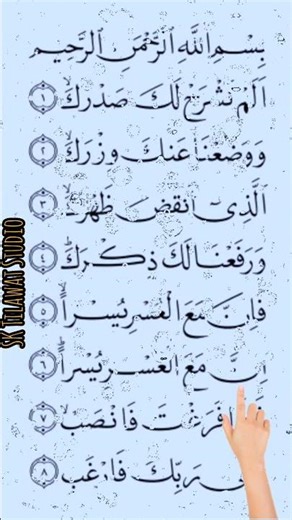 بِسْمِ اللّٰهِ الرَّحْمٰنِ الرَّحِيْمِ
اَلَمْ نَشْرَحْ لَكَ صَدْرَكَ ۙ﴿۱﴾
وَوَضَعْنَا عَنْكَ وِزْرَكَ ۙ﴿۲﴾
الَّذِيْۤ اَنْقَضَ ظَهْرَكَ ۙ﴿۳﴾
وَرَفَعْنَا لَكَ ذِكْرَكَ ؕ﴿۴﴾
فَاِنَّ مَعَ الْعُسْرِ يُسْرًا ۙ﴿۵﴾
اِنَّ مَعَ الْعُسْرِ يُسْرًا ؕ﴿۶﴾
فَرَغْتَ فَانْصَبْ ۙ﴿۷﴾
رَبِّكَ فَارْغَبْ ﴿۸﴾
SK TILAVAT STUDIO